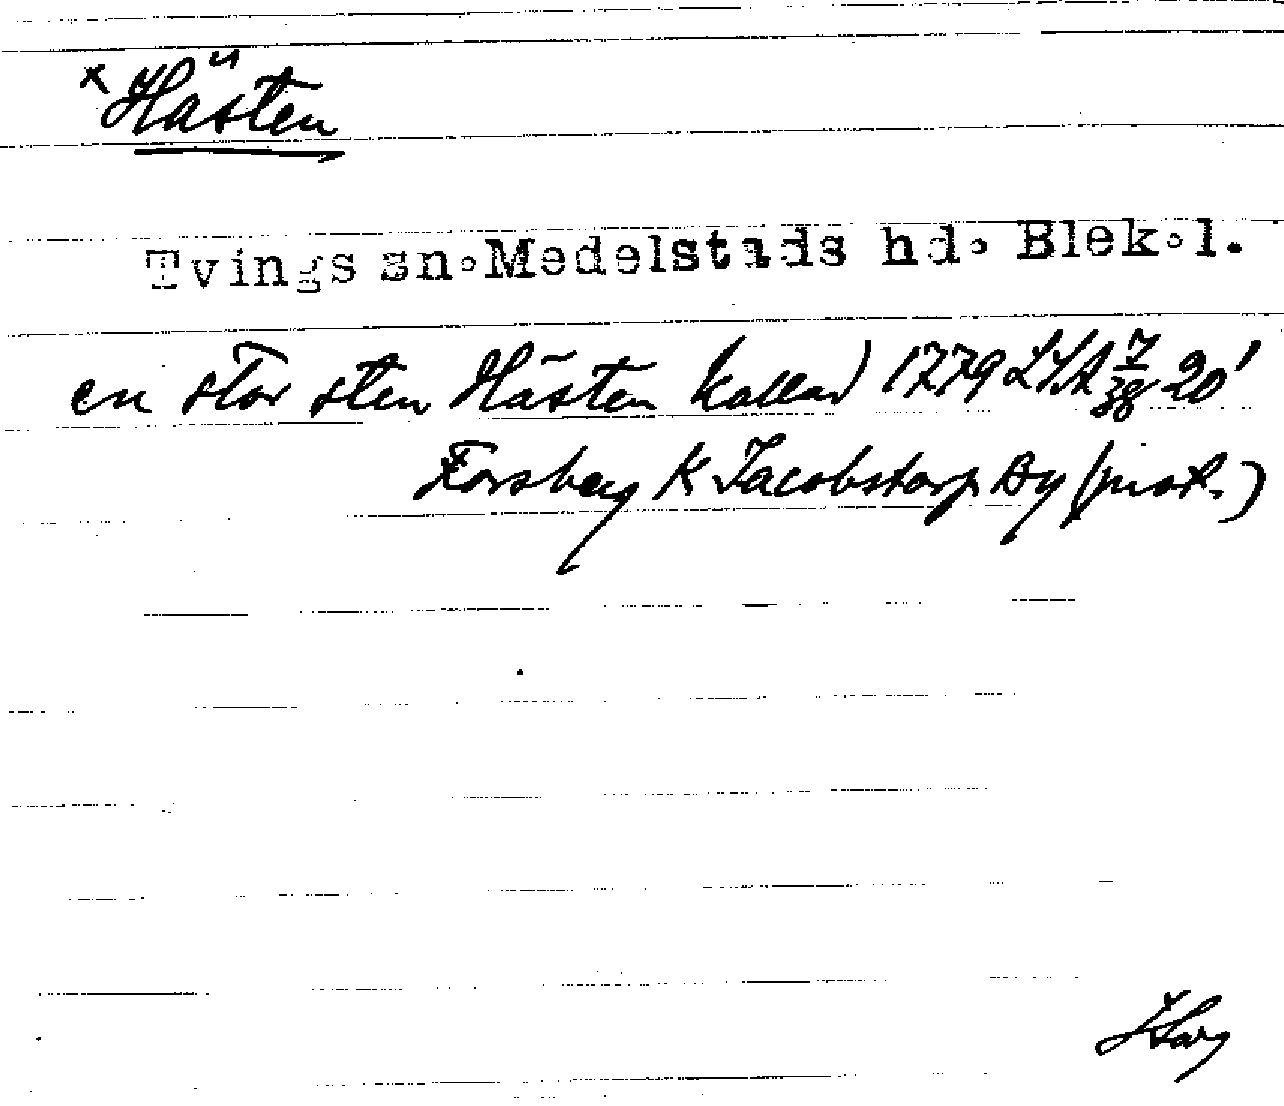 x Hästen
Tvings sn. Medelstads hd. Blek.l.
en stor sten Hästen kallad 1779 LSA 20'
Forsberg K Jacobstorp Ay (prot.)